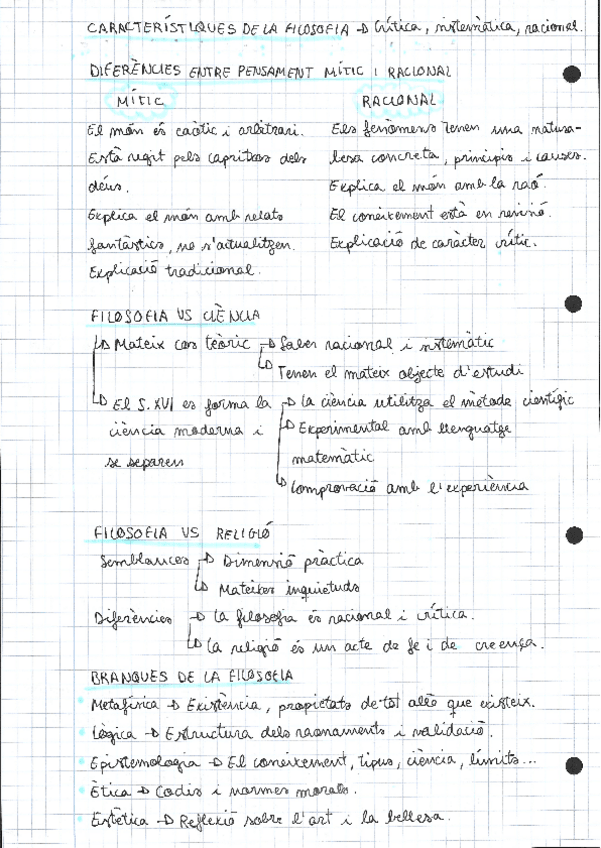 CARACTERÍSTIQUES DE LA FILOSOFIA → Crítica, sistemàtica, racional.
DIFERÈNCIES ENTRE PENSAMENT MÍTIC I RACIONAL
MÍTIC
El món és caòtic i arbitrari.
Està regit pels capritxos dels
déus.
Explica el món amb relats
fantàstics, no s'actualitzen.
Explicació tradicional.
RACIONAL
Els fenòmens tenen una natura-
lesa concreta, principis i causes.
Explica el món amb la raó.
El coneixement està en revisió.
Explicació de caràcter crític.
FILOSOFIA VS CIÈNCIA
→ Mateix cos teòric → Saber racional i sistemàtic
→ Tenen el mateix objecte d'estudi
→ El S.XVI es forma la → La ciència utilitza el mètode científic
ciència moderna i → Experimental amb llenguatge
se separen matemàtic
→ Comprovació amb l'experiència
FILOSOFIA VS RELIGIÓ
Semblances → Dimensió pràctica
→ Mateixes inquietuds
Diferències → La filosofia és racional i crítica.
→ La religió és un acte de fe i de creença.
BRANQUES DE LA FILOSOFIA
• Metafísica → Existència, propietats de tot allò que existeix.
• Lògica → Estructura dels raonaments i validació.
• Epistemologia → El coneixement, tipus, ciència, límits...
• Ètica → Codis i normes morals.
• Estètica → Reflexió sobre l'art i la bellesa.